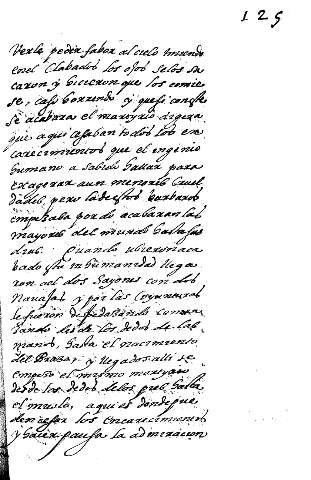 125
verle pedir favor al cielo mirando
en el Clabados los ojos se los sa
caron y hicieron que los comie
se, caso horrendo y que si con esto
se acabara el martyrio digera
que aqui cesaban todos los en
carecimientos que el ingenio
humano a sabido hallar para
exagerar aun menores cruel
dades, pero la destos barbaros
empezaba por do acabaran las
mayores del mundo hasta sus
dias. Quando ubieron aca
bado esta inhumanidad llega
ron a el dos Sayones con dos
Navajas y por las Coyunturas
le fueron despedazando comen
zando desde los dedos de las
manos, hasta el nacimiento
del Brazo, y llegados alli se
empezo el mismo martyrio
desde los dedos de los pies hasta
el muslo, aqui es donde pue
den cesar los encarecimientos
y hacer pausa la admiracion